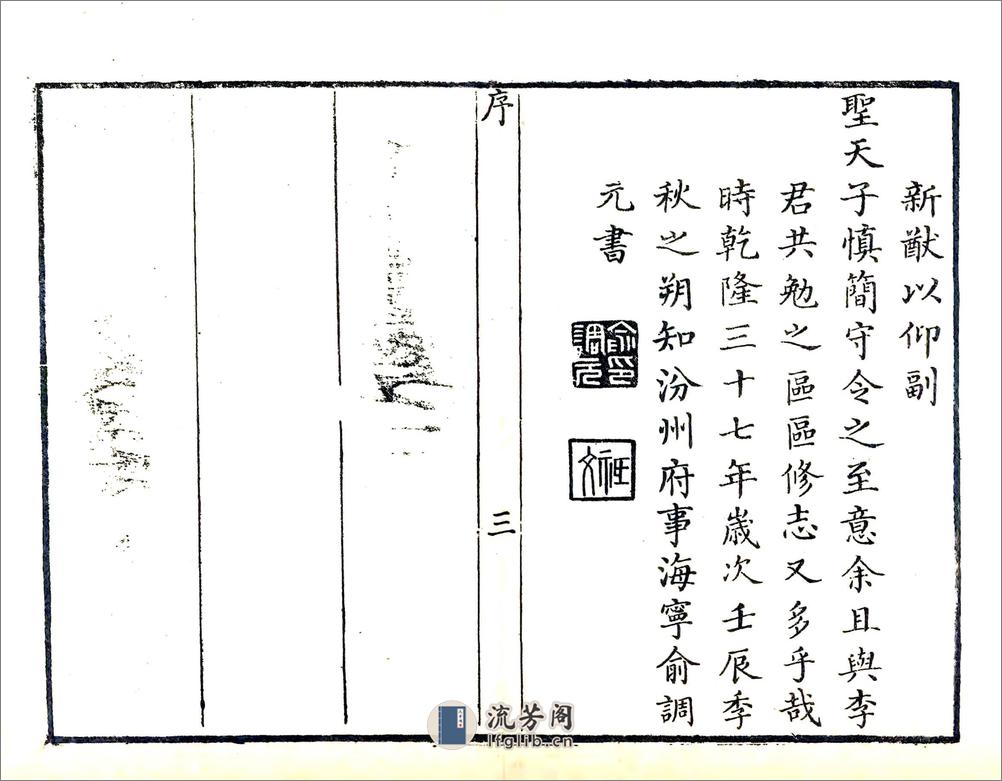 新猷以仰副
聖天子慎簡守令之至意余且與李
君共勉之區區修志又多乎哉
時乾隆三十七年歲次壬辰季
秋之朔知汾州府事海寧俞調
元書
俞印調元
序
三
流芳阁
lfglib.cn